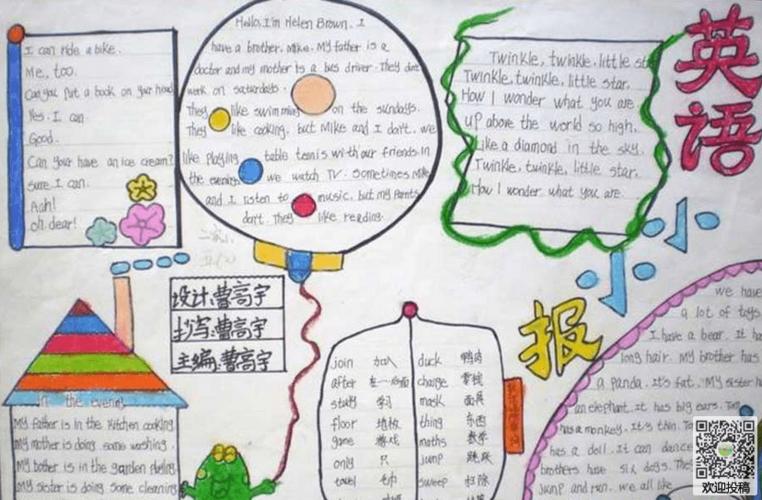 I can ride a bike.
Me, too.
Can you put a book on your head
Yes. I can
Good.
Can your have an ice cream?
Sure. I can.
Aah!
oh dear!
Hello, I'm Helen Brown. I
have a brother, Mike. My father is a
doctor and my mother is a bus driver. They don't
work on saturdays.
They like swimming on the sundays.
They like cooking, but Mike and I don't. we
like playing table tennis with our friends. In
the evening we watch TV. Sometimes Mike
and I listen to music, but my Parents
don't. They like reading.
Twinkle, twinkle, little st
Twinkle, twinkle, little star,
How I wonder what you are.
up above the world so high,
Like a diamond in the sky.
Twinkle, twinkle, little star,
How I wonder what you are.
英语
小小
报
设计:曹高宇
抄写:曹高宇
主编:曹高宇
In the evening
My father is in the kitchen cooking
My mother is doing some washing.
My bother is in the garden
My sister is doing some cleaning
join 加入 duck 鸭肉
after 在…后面 change 零钱
study 学习 mask 面具
floor 地板 thing 东西
game 游戏 maths 数学
only 只 jump 跳跃
towel 毛巾 sweep 扫除
we have
a lot of toys.
I have a bear. It ha
long hair. My brother has
a Panda. It's fat. My sister h
an elephant. It has big ears. Tom
has a monkey. It's thin. To
has a doll. It can dance
brothers have six dogs. They
Jump and run. we all like
欢迎投稿